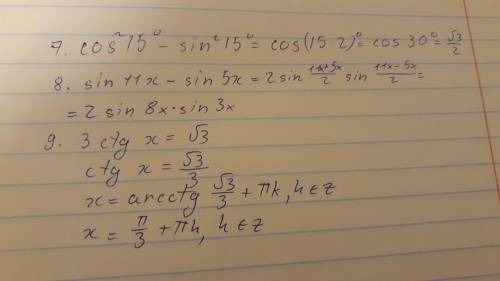 7. cos²15° - sin²15° = cos(15·2)° = cos 30° = √3/2
8. sin 11x - sin 5x = 2 sin (11x+5x)/2 sin (11x-5x)/2 =
= 2 sin 8x · sin 3x
9. 3 ctg x = √3
ctg x = √3/3
x = arcctg √3/3 + πk, k∈z
x = π/3 + πk, k∈z